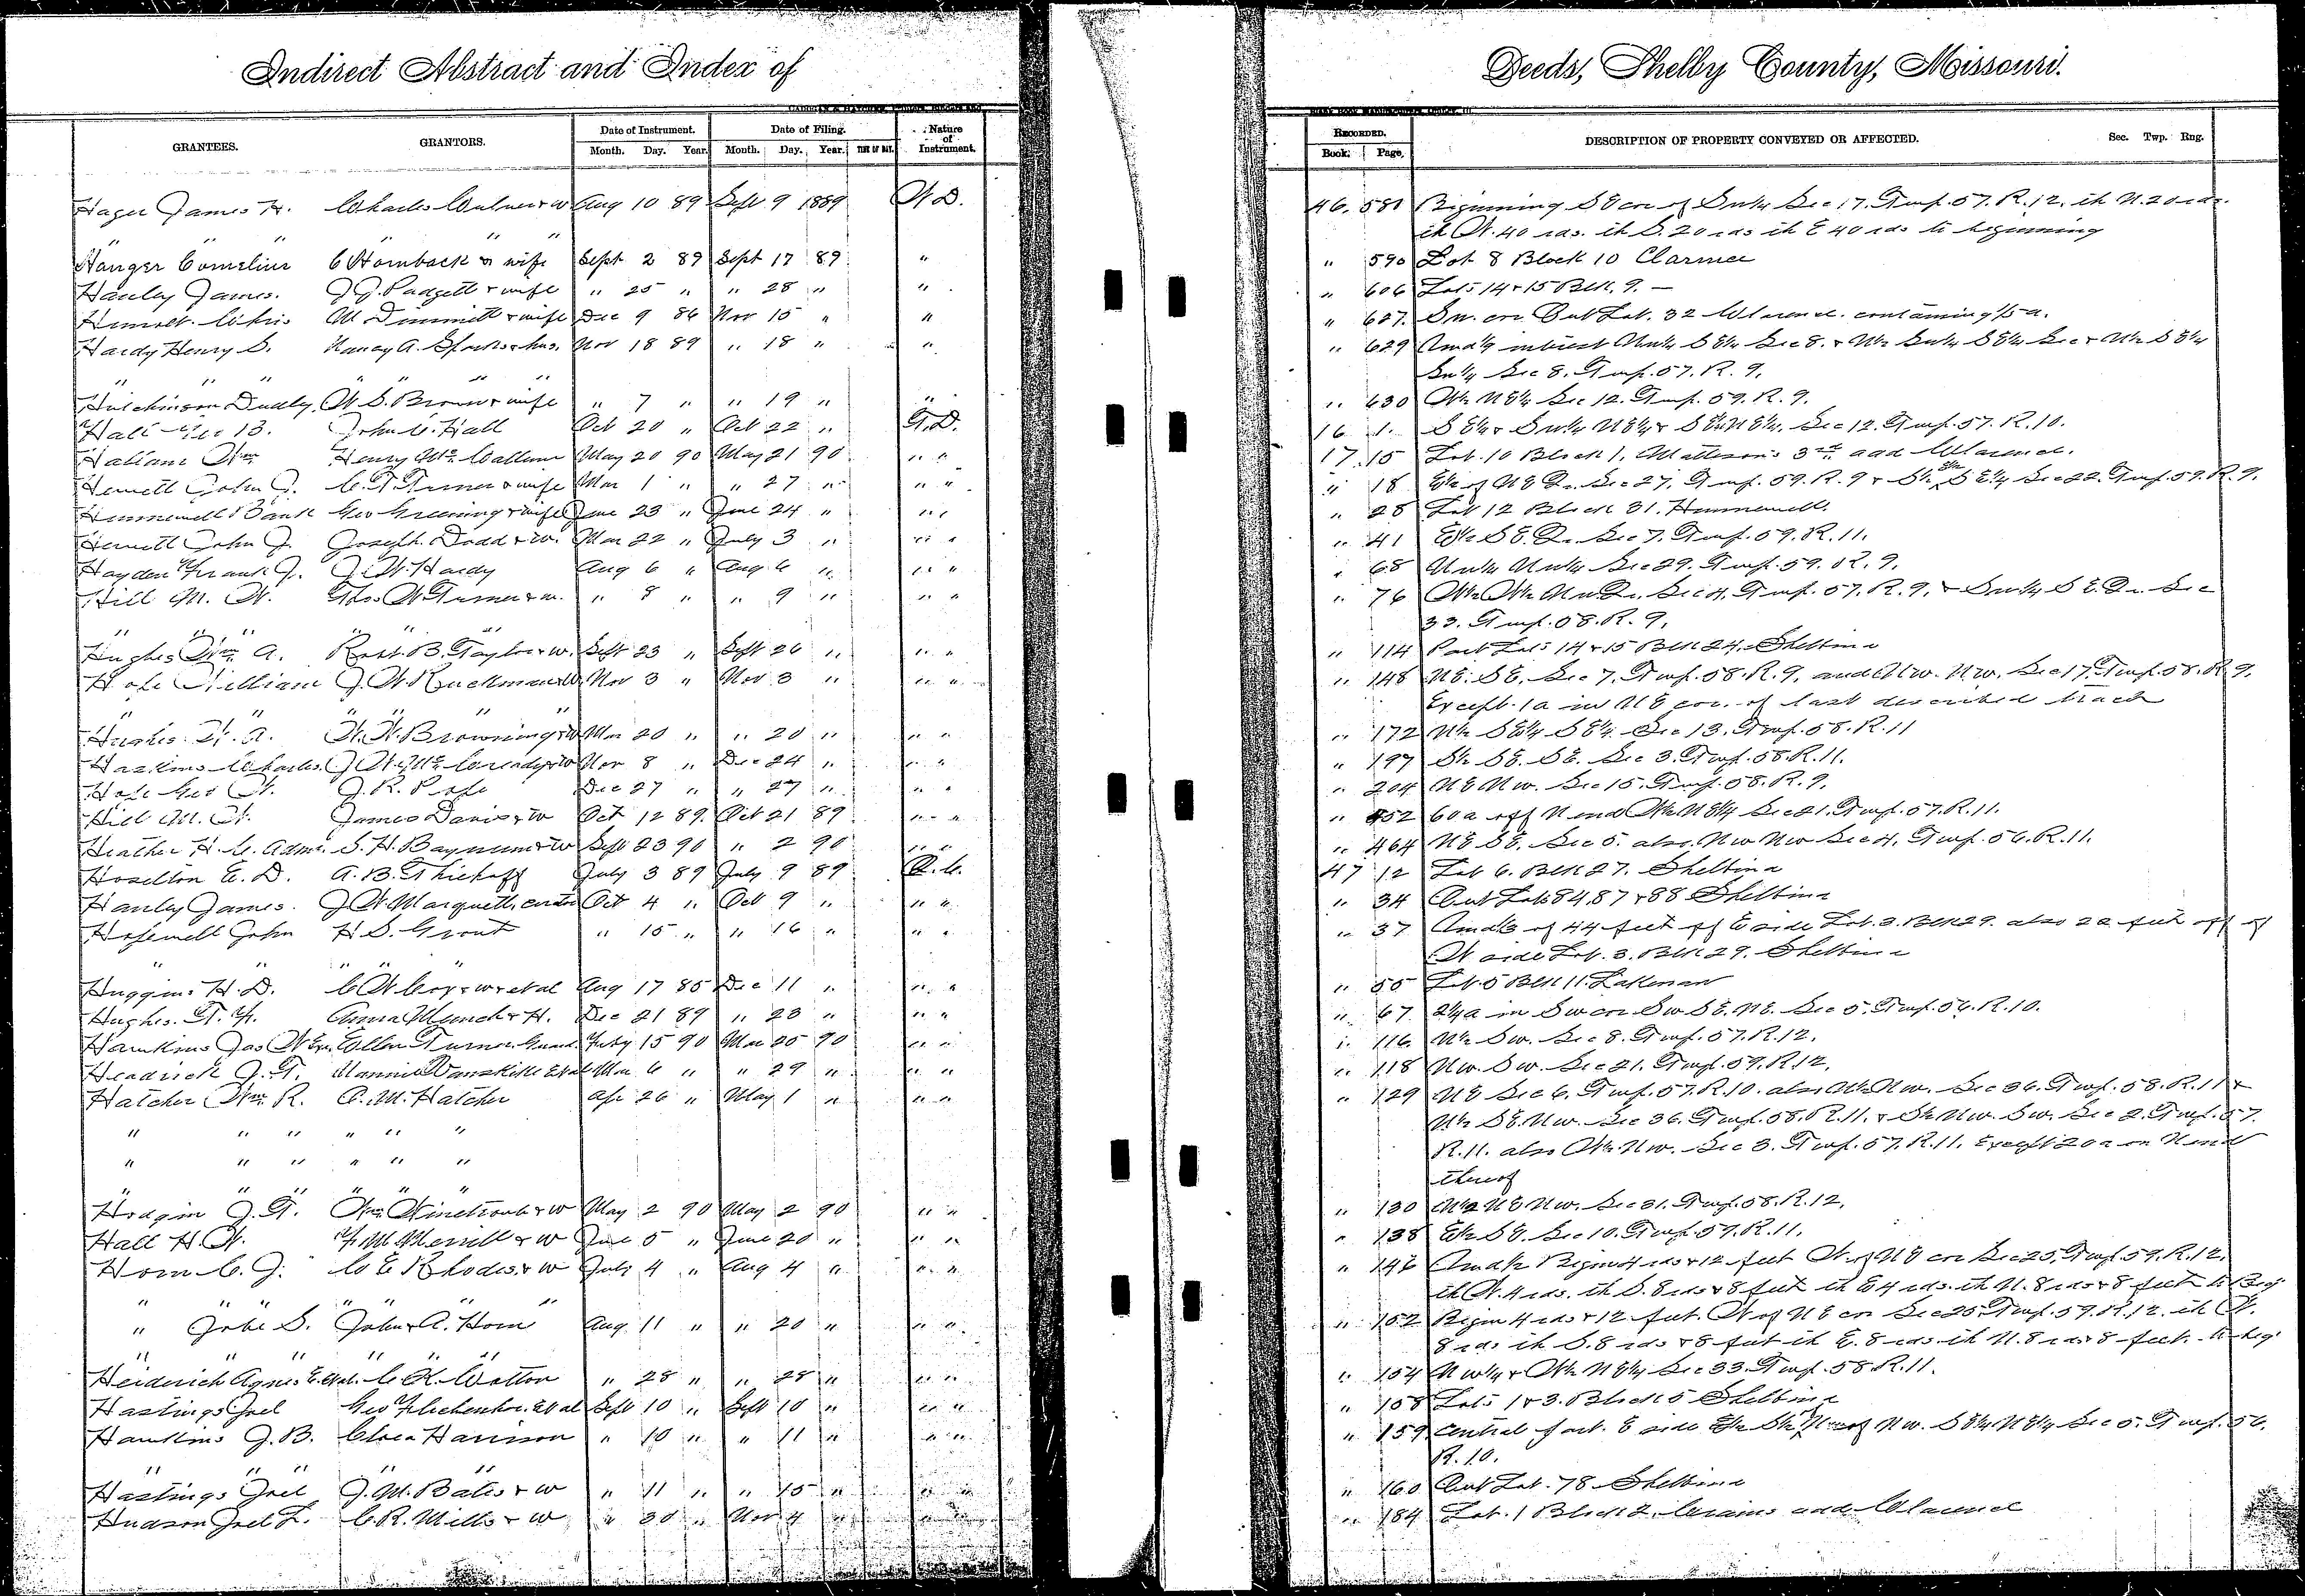 Indirect Abstract and Index of Deeds, Shelby County, Missouri.
GRANTEES. GRANTORS. Date of Instrument. Date of Filing. Nature of Instrument. RECORDED. DESCRIPTION OF PROPERTY CONVEYED OR AFFECTED. Sec. Twp. Rng.
Month. Day. Year. Month. Day. Year. TIME OF DAY. Book. Page.
Hager James H. Charles & w Aug 10 89 Sept 9 1889 W D. 46. 581 Beginning S E cor of Sw¼ Sec 17. Twp. 57. R. 12. th N. 20 rds.
" " " " " th W. 40 rds. th S. 20 rds th E 40 rds to beginning
Hanger Cornelius C Hornback & wife Sept 2 89 Sept 17 89 " " 590 Lot 8 Block 10 Clarence
Hanley James. J G. Padgett & wife " 25 " " 28 " " " 606 Lots 14 & 15 Blk. 9. —
M Dimmitt & wife Dec 9 86 Nov 15 " " " 627. Sw. cor Out Lot. 32 Clarence. containing 1/5 a.
Hardy Henry S. Nancy A. Sparks & hus. Nov 18 89 " 18 " " " 629 Und ¼ interest Nw¼ S E¼ Sec 8. & N½ Sw¼ S E¼ Sec & N½ S E¼
" " " " " " Sw¼ Sec 8. Twp. 57. R. 9.
Hutchinson Dudly. W. S. Brown & wife " 7 " " 19 " " " 630 W½ N E¼ Sec 12. Twp. 59. R. 9.
Hall Geo B. John C. Hall Oct 20 " Oct 22 " T. D. 16 1. S E¼ & Sw¼ N E¼ & S E¼ N E¼. Sec 12. Twp. 57. R. 10.
Wm Henry Mc Callum May 20 90 May 21 90 " " 17. 15 Lot. 10 Block 1. Matteson's 3rd add Clarence.
Hewett John J. C. T. Turner & wife Mar 1 " " 27 " " " " 18 E½ of N E Qr. Sec 27. Twp. 59. R. 9 & S½ S E¼ Sec 22. Twp. 59. R. 9.
Hunnewell Bank Geo Greening & wife June 23 " June 24 " " " " 28 Lot 12 Block 31. Hunnewell.
Hewett John J. Joseph Dodd & w. Mar 22 " July 3 " " " " 41 E½ S E. Qr. Sec 7. Twp. 59. R. 11.
Hayden Frank J. J. W. Hardy Aug 6 " Aug 6 " " " " 68 Nw¼ Nw¼ Sec 29. Twp. 59. R. 9.
Hill M. W. Thos. W Turner & w. " 8 " " 9 " " " " 76 W½ W½ Nw Qr. Sec 4. Twp. 57. R. 9. & Sw¼ S E. Qr. Sec
" " " " " " 33. Twp. 58. R. 9.
Hughes Wm A. Robt. B. Taylor & w. Sept 23 " Sept 26 " " " " 114 Part Lots 14 & 15 Blk 24. Shelbina
William J. W. Ruckman & w Nov 3 " Nov 3 " " " " 148 N E. S E. Sec 7. Twp. 58. R. 9. and Nw. Nw. Sec 17. Twp. 58. R 9.
" " " " Except. 1 a in N E cor. of last described tract
Hughes W. A. W. W. Browning & w Mar 20 " " 20 " " " " 172 N½ S E¼ S E¼. Sec 13. Twp. 58. R. 11
Haskins Charles. J W. Mc & w Nov 8 " Dec 24 " " " " 197 S½ S E. S E. Sec 3. Twp. 58. R. 11.
Geo W. J. R. Dec 27 " " 27 " " " " 204 N E Nw. Sec 15. Twp. 58. R. 9.
Hill M. W. James Davis & w Oct 12 89. Oct 21 89 " " " 452 60 a off N end W½ N E¼ Sec 21. Twp. 57. R. 11.
Heather H. C. Admr. S. H. Baynum & w Sept 23 90 " 2 90 " " " 464 N E S E. Sec 5. also. Nw Nw Sec 4. Twp. 56. R. 11.
Hoselton E. D. A. B. Thiehoff July 3 89 July 9 89 Q. C. 47 12 Lot 6. Blk 27. Shelbina
Hanley James. J W Marquette, Oct 4 " Oct 9 " " " " 34 Out Lots 84, 87 & 88 Shelbina
Hopewell John H S. Grout " 15 " " 16 " " " " 37 of 44 feet off E side Lot. 2. Blk 29. also 22 feet off of
" " " " " W side Lot. 3. Blk 29. Shelbina
Huggins H. D. & w et al Aug 17 85 Dec 11 " " " " 55 Lot. 5 Blk 11. Lakenan
Hughes. T. F. Anna & H. Dec 21 89 " 23 " " " " 67 2¼ a in Sw cor Sw S E. N E. Sec 5. Twp. 56. R. 10.
Hawkins Jas W Ellen Turner July 15 90 Mar 25 90 " " " 116 N½ Sw. Sec 8. Twp. 57. R. 12.
Headrick J. T. Mannie Vanskike et al Mar 6 " " 29 " " " " 118 Nw. Sw. Sec 21. Twp. 59. R 12.
Hatcher Wm R. E. M. Hatcher Apr 26 " May 1 " " " " 129 N E Sec 6. Twp. 57. R. 10. also W½ Nw. Sec 36. Twp. 58. R. 11 &
" " " " " " N½ S E. Nw. Sec 36. Twp. 58. R. 11. & S½ Nw. Sw. Sec 2. Twp. 57.
" " " " " " R. 11. also W½ Nw. Sec 3. Twp. 57. R. 11. Except 20 a on N end
" " " " " thereof
Hodgin J. T. Wm & w May 2 90 May 2 90 " " " 130 N½ N E Nw. Sec 31. Twp. 58. R. 12.
Hall H. W. F M Merrill & w June 5 " June 20 " " " " 138 E½ S E. Sec 10. Twp. 59. R. 11.
Horn C. J. C E Rhodes & w July 4 " Aug 4 " " " " 146 Und ½ Begin 4 rds & 12 feet W. of N E cor Sec 25. Twp. 59. R. 12.
" " " " " " th W. 4 rds. th S. 8 rds & 8 feet th E 4 rds. th N. 8 rds & 8 feet to Beg
" John S. John A. Horn Aug 11 " " 20 " " " " 152 Begin 4 rds & 12 feet. W of N E cor Sec 25. Twp. 59. R. 12. th W.
" " " " " 8 rds th S. 8 rds & 8 feet th E. 8 rds th N. 8 rds & 8 feet. to beg.
Heiderich Agnes E. et al. C K. Cotton " 28 " " 28 " " " " 154 Nw¼ & W½ N E¼ Sec 33. Twp. 58. R. 11.
Hastings Joel Geo et al Sept 10 " Sept 10 " " " " 158 Lots 1 & 3. Block 5 Shelbina
Hawkins J. B. Harrison " 10 " " 11 " " " " 159 Central part. E side Nw. S E¼ N E¼ Sec 5. Twp. 56.
" " " " " R. 10.
Hastings Joel J. M. Bates & w " 11 " " 15 " " " " 160 Out Lot. 78 Shelbina
Hudson Joel L. C. R. Mills & w " 30 " Nov 4 " " " " 184 Lot. 1 Block 2. Crains add Clarence